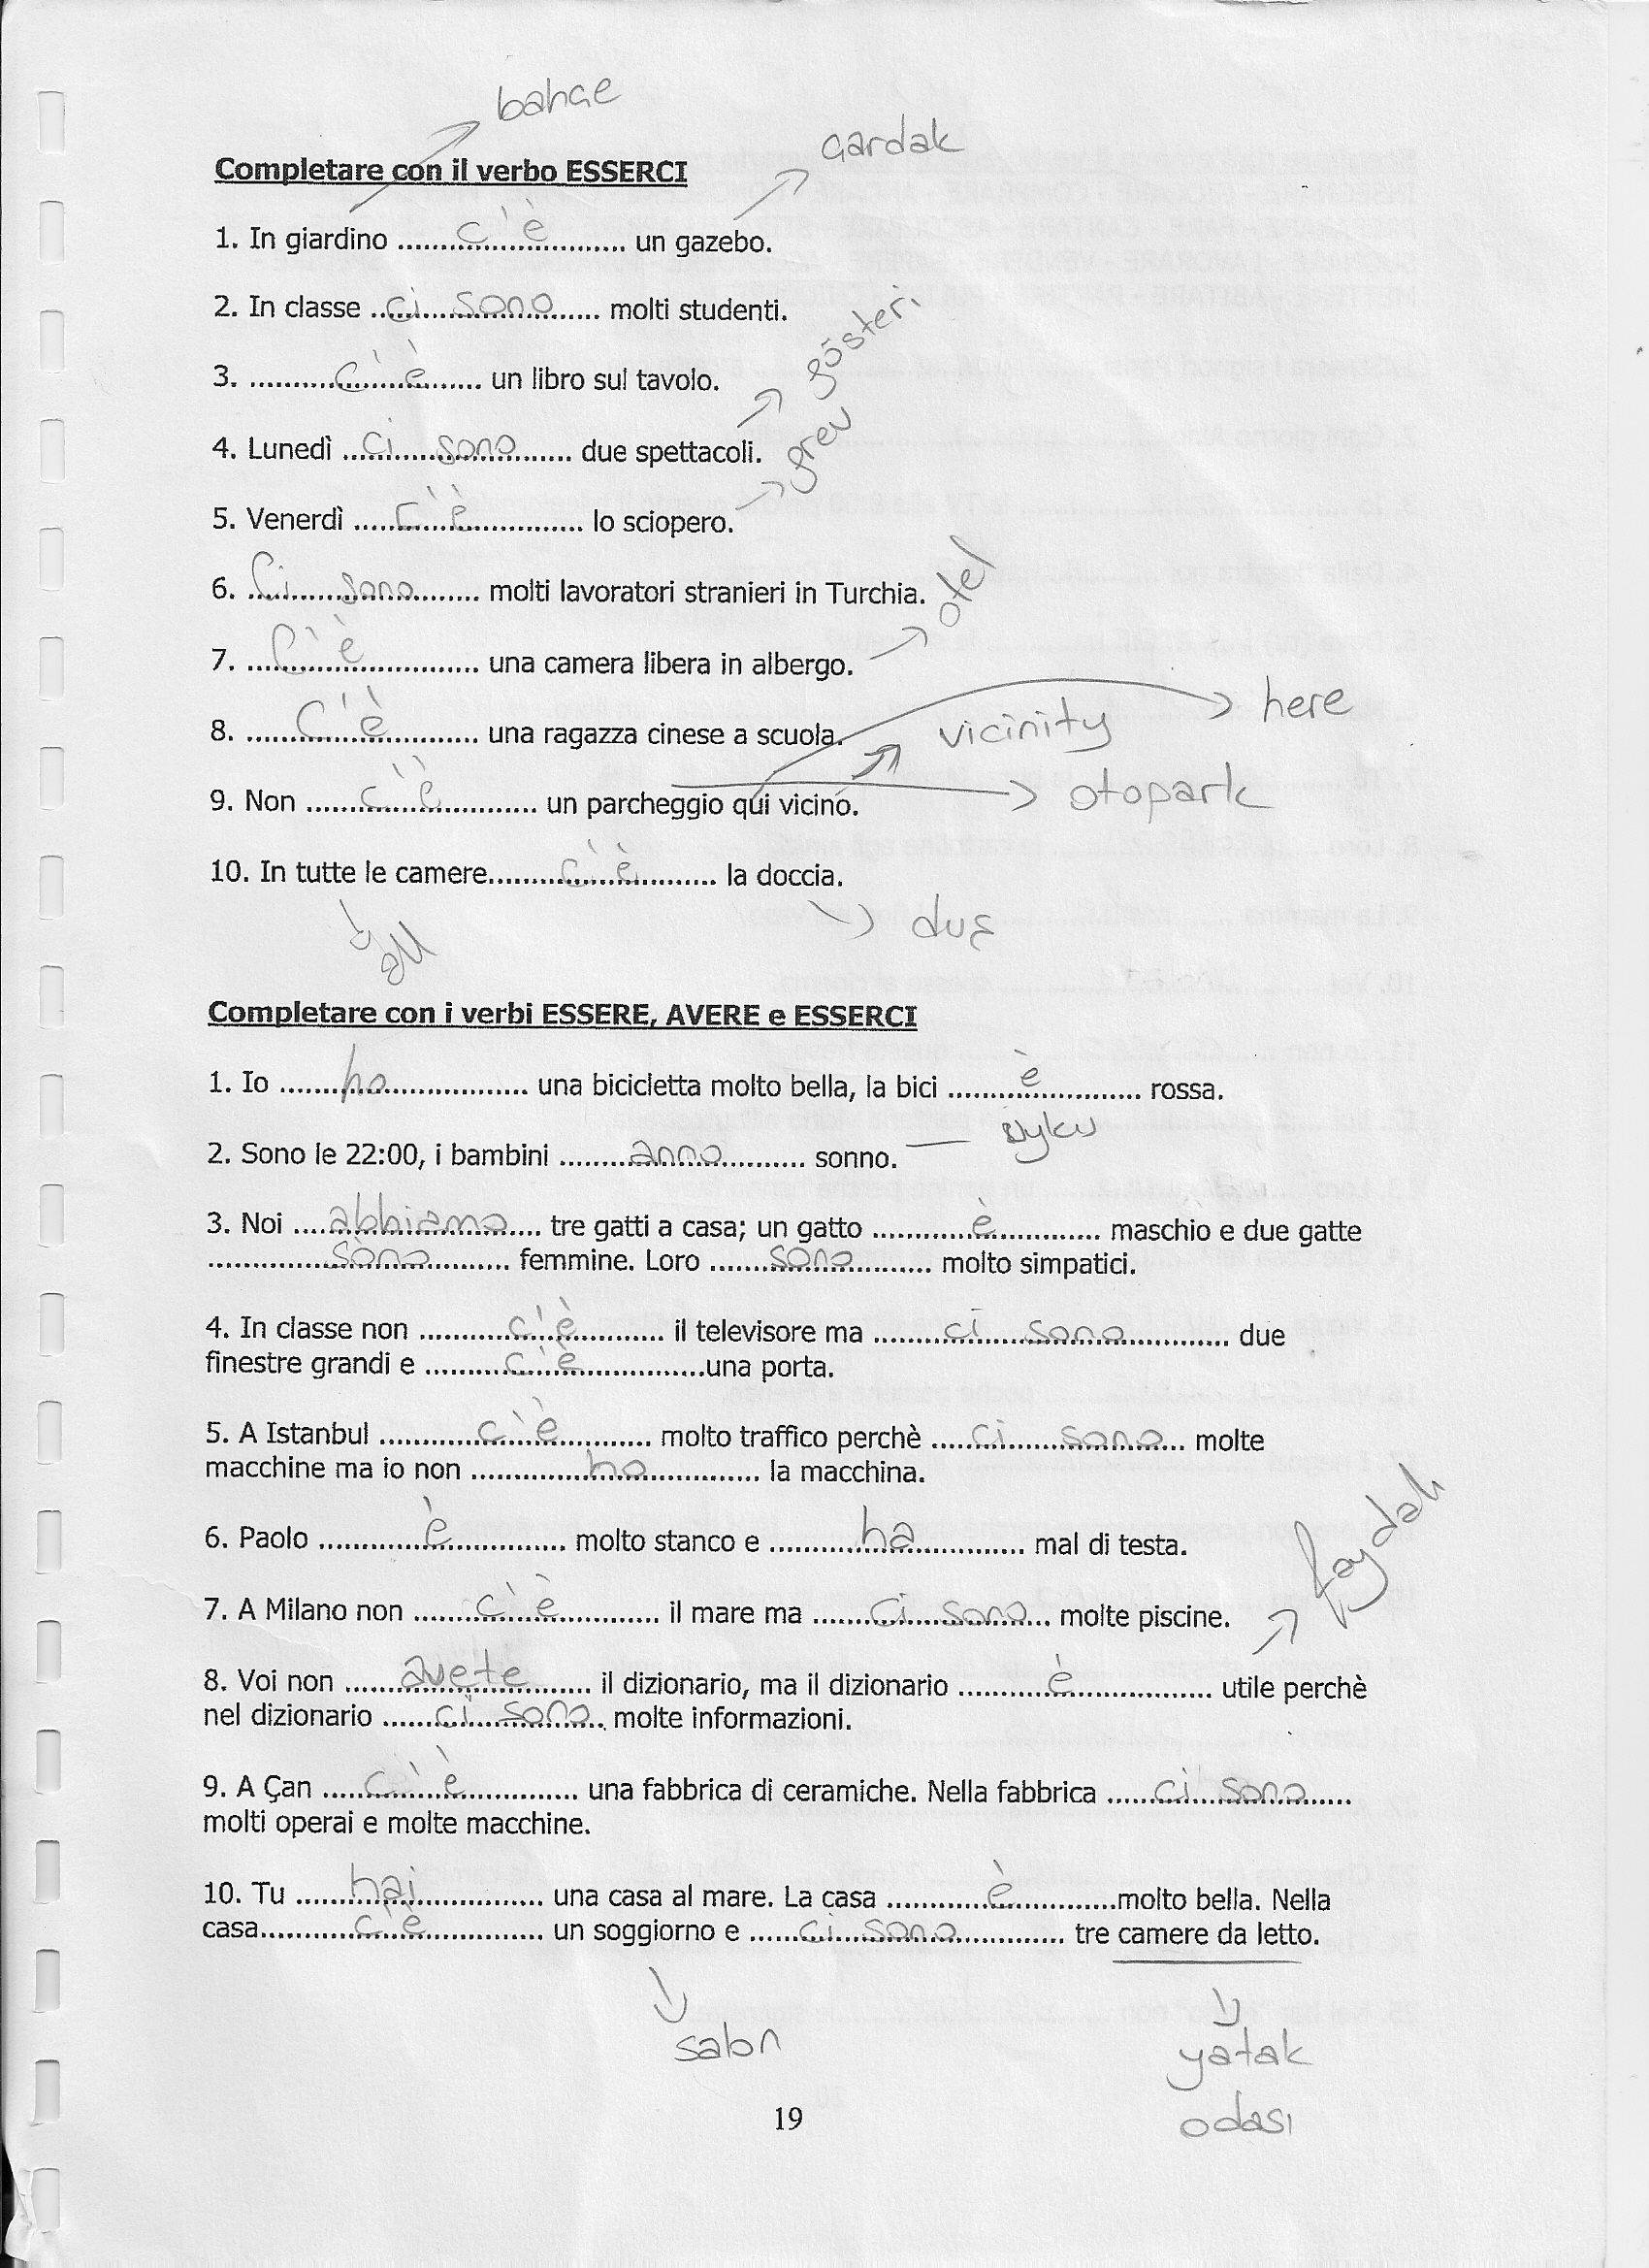 bahçe
çardak
Completare con il verbo ESSERCI
1. In giardino .......c'è....... un gazebo.
2. In classe .......ci sono....... molti studenti.
3. .......c'è....... un libro sul tavolo.
gösteri
4. Lunedì .......ci sono....... due spettacoli.
grev
5. Venerdì .......c'è....... lo sciopero.
6. .......Ci sono....... molti lavoratori stranieri in Turchia.
otel
7. .......C'è....... una camera libera in albergo.
here
8. .......C'è....... una ragazza cinese a scuola.
vicinity
9. Non .......c'è....... un parcheggio qui vicino.
otopark
10. In tutte le camere.......c'è....... la doccia.
all
duş
Completare con i verbi ESSERE, AVERE e ESSERCI
1. Io .......ho....... una bicicletta molto bella, la bici .......è....... rossa.
2. Sono le 22:00, i bambini .......anno....... sonno. uyku
3. Noi .......abbiamo....... tre gatti a casa; un gatto .......è....... maschio e due gatte
.......sono....... femmine. Loro .......sono....... molto simpatici.
4. In classe non .......c'è....... il televisore ma .......ci sono....... due
finestre grandi e .......c'è.......una porta.
5. A Istanbul .......c'è....... molto traffico perchè .......ci sono....... molte
macchine ma io non .......ho....... la macchina.
6. Paolo .......è....... molto stanco e .......ha....... mal di testa.
7. A Milano non .......c'è....... il mare ma .......ci sono....... molte piscine.
faydalı
8. Voi non .......avete....... il dizionario, ma il dizionario .......è....... utile perchè
nel dizionario .......ci sono....... molte informazioni.
9. A Çan .......c'è....... una fabbrica di ceramiche. Nella fabbrica .......ci sono.......
molti operai e molte macchine.
10. Tu .......hai....... una casa al mare. La casa .......è.......molto bella. Nella
casa.......c'è....... un soggiorno e .......ci sono....... tre camere da letto.
salon
yatak
odası
19